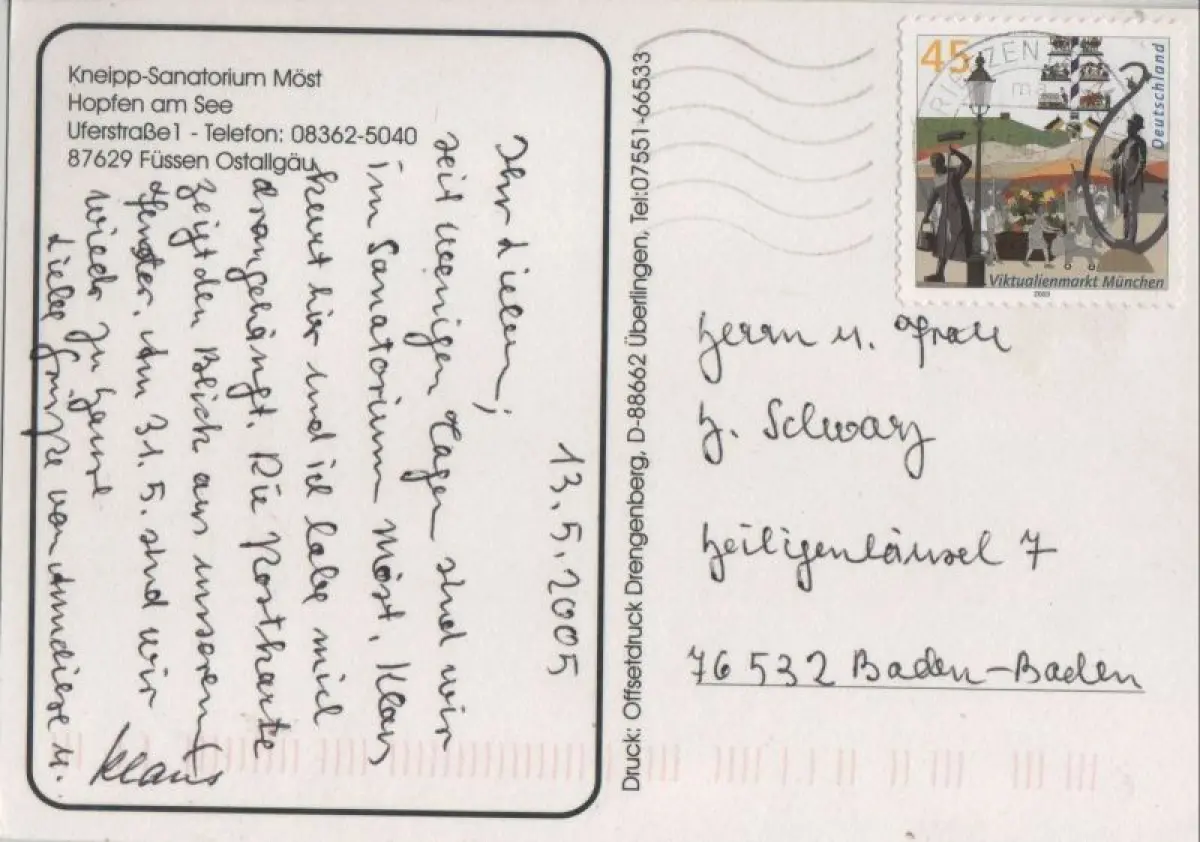 Kneipp-Sanatorium Möst
Hopfen am See
Uferstraße1 - Telefon: 08362-5040
87629 Füssen Ostallgäu
13.5.2005
Ihr Lieben,
seit wenigen Tagen sind wir
im Sanatorium Möst. Klaus
kurt hier und ich habe mich
drangehängt. Die Postkarte
zeigt den Blick aus unserem
Fenster. Am 31.5. sind wir
wieder zu Hause
Liebe Grüße von Anneliese u.
Klaus
Druck: Offsetdruck Drengenberg, D-88662 Überlingen, Tel:07551-66533
45
Deutschland
Viktualienmarkt München
2003
Herrn u. Frau
H. Schwarz
Heiligenhäusel 7
76532 Baden-Baden